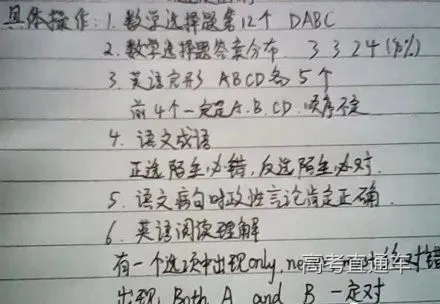 具体操作：1. 数学选择题第12个 DABC
2. 数学选择题答案分布 3 3 2 4 (90%)
3. 英语完形 ABCD各5个
前4个一定A.B.CD.顺序不定
4. 语文成语
正选陌生必错，反选陌生必对.
5. 语文病句时政性言论肯定正确.
6. 英语阅读理解
有一个选项中出现only, never, must 绝对错
出现 Both A and B 一定对
高考直通车